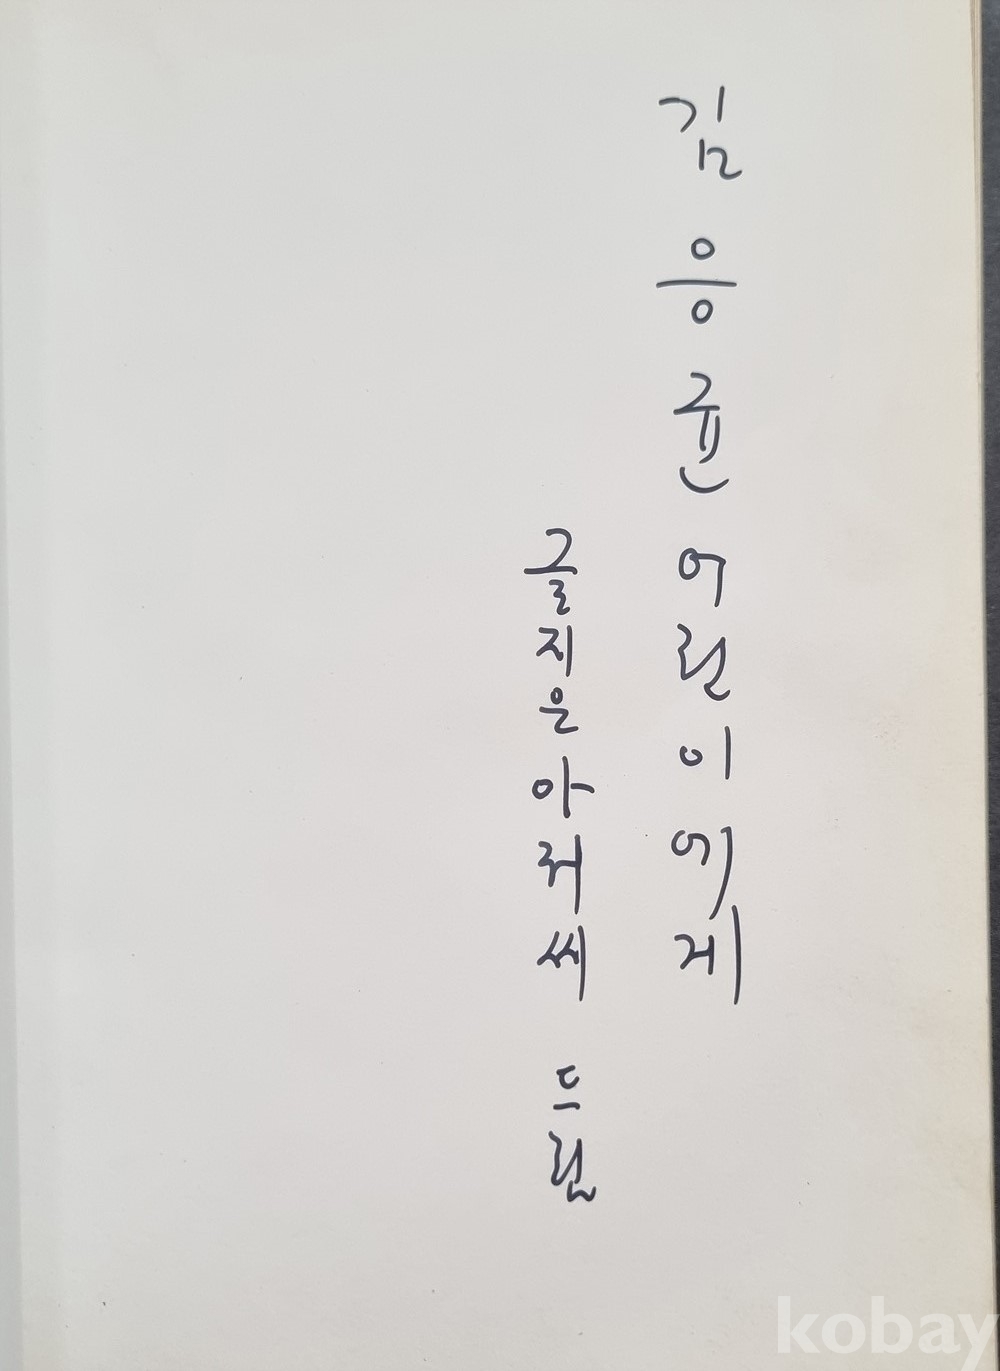 김 응 균 어린이에게
글지은 아저씨 드림
kobay